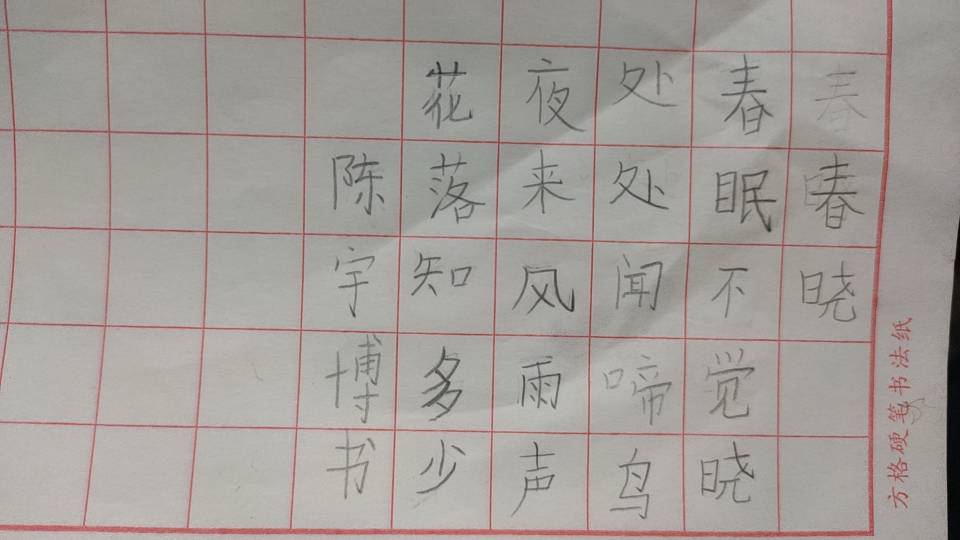 春晓
春眠不觉晓
处处闻啼鸟
夜来风雨声
花落知多少
陈宇博书
方格硬笔书法纸